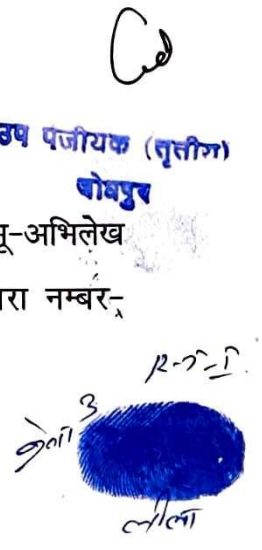 उप पंजीयक (तृतीय)
जोधपुर
भू-अभिलेख
रा नम्बर-
R-T-I.
लीला